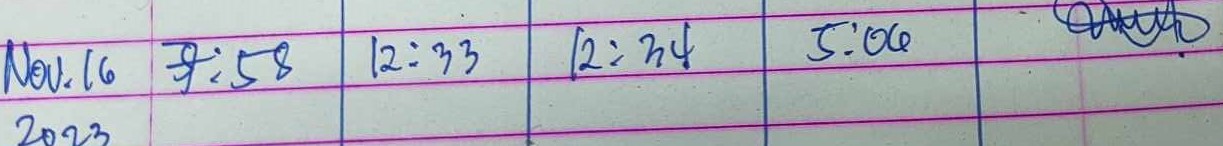 Nov. 16 7:58 12:33 12:34 5:06
2023